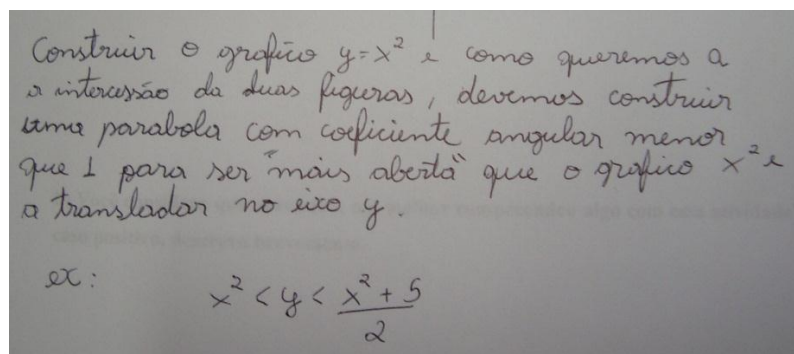 Construir o grafico y=x² e como queremos a
a intercessão da duas figuras, devemos construir
uma parabola com coeficiente angular menor
que 1 para ser "mais aberta" que o grafico x² e
a transladar no eixo y.
ex: x² < y < (x² + 5)/2